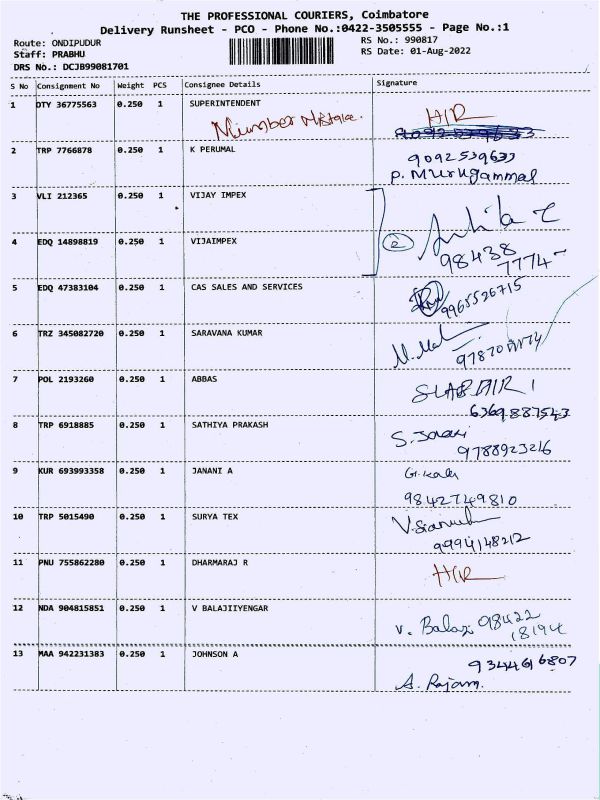 THE PROFESSIONAL COURIERS, Coimbatore
Delivery Runsheet - PCO - Phone No.:0422-3505555 - Page No.:1
Route: ONDIPUDUR
RS No.: 990817
Staff: PRABHU
RS Date: 01-Aug-2022
DRS No.: DCJB99081701
S No Consignment No Weight PCS Consignee Details Signature
1 DTY 36775563 0.250 1 SUPERINTENDENT H/R
Number Mistake. 9092539633
2 TRP 7766878 0.250 1 K PERUMAL 9092539633
P. Murugammal
3 VLI 212365 0.250 1 VIJAY IMPEX
4 EDQ 14898819 0.250 1 VIJAIMPEX 2 98438
7774
5 EDQ 47383104 0.250 1 CAS SALES AND SERVICES
9965526715
6 TRZ 345082720 0.250 1 SARAVANA KUMAR
7 POL 2193260 0.250 1 ABBAS
6369887543
8 TRP 6918885 0.250 1 SATHIYA PRAKASH
9788923216
9 KUR 693993358 0.250 1 JANANI A
9842749810
10 TRP 5015490 0.250 1 SURYA TEX
9994148212
11 PNU 755862280 0.250 1 DHARMARAJ R H/R
12 NDA 904815851 0.250 1 V BALAJIIYENGAR
V. Balaji 98422
18194
13 MAA 942231383 0.250 1 JOHNSON A 9344616807
A. Rajam.